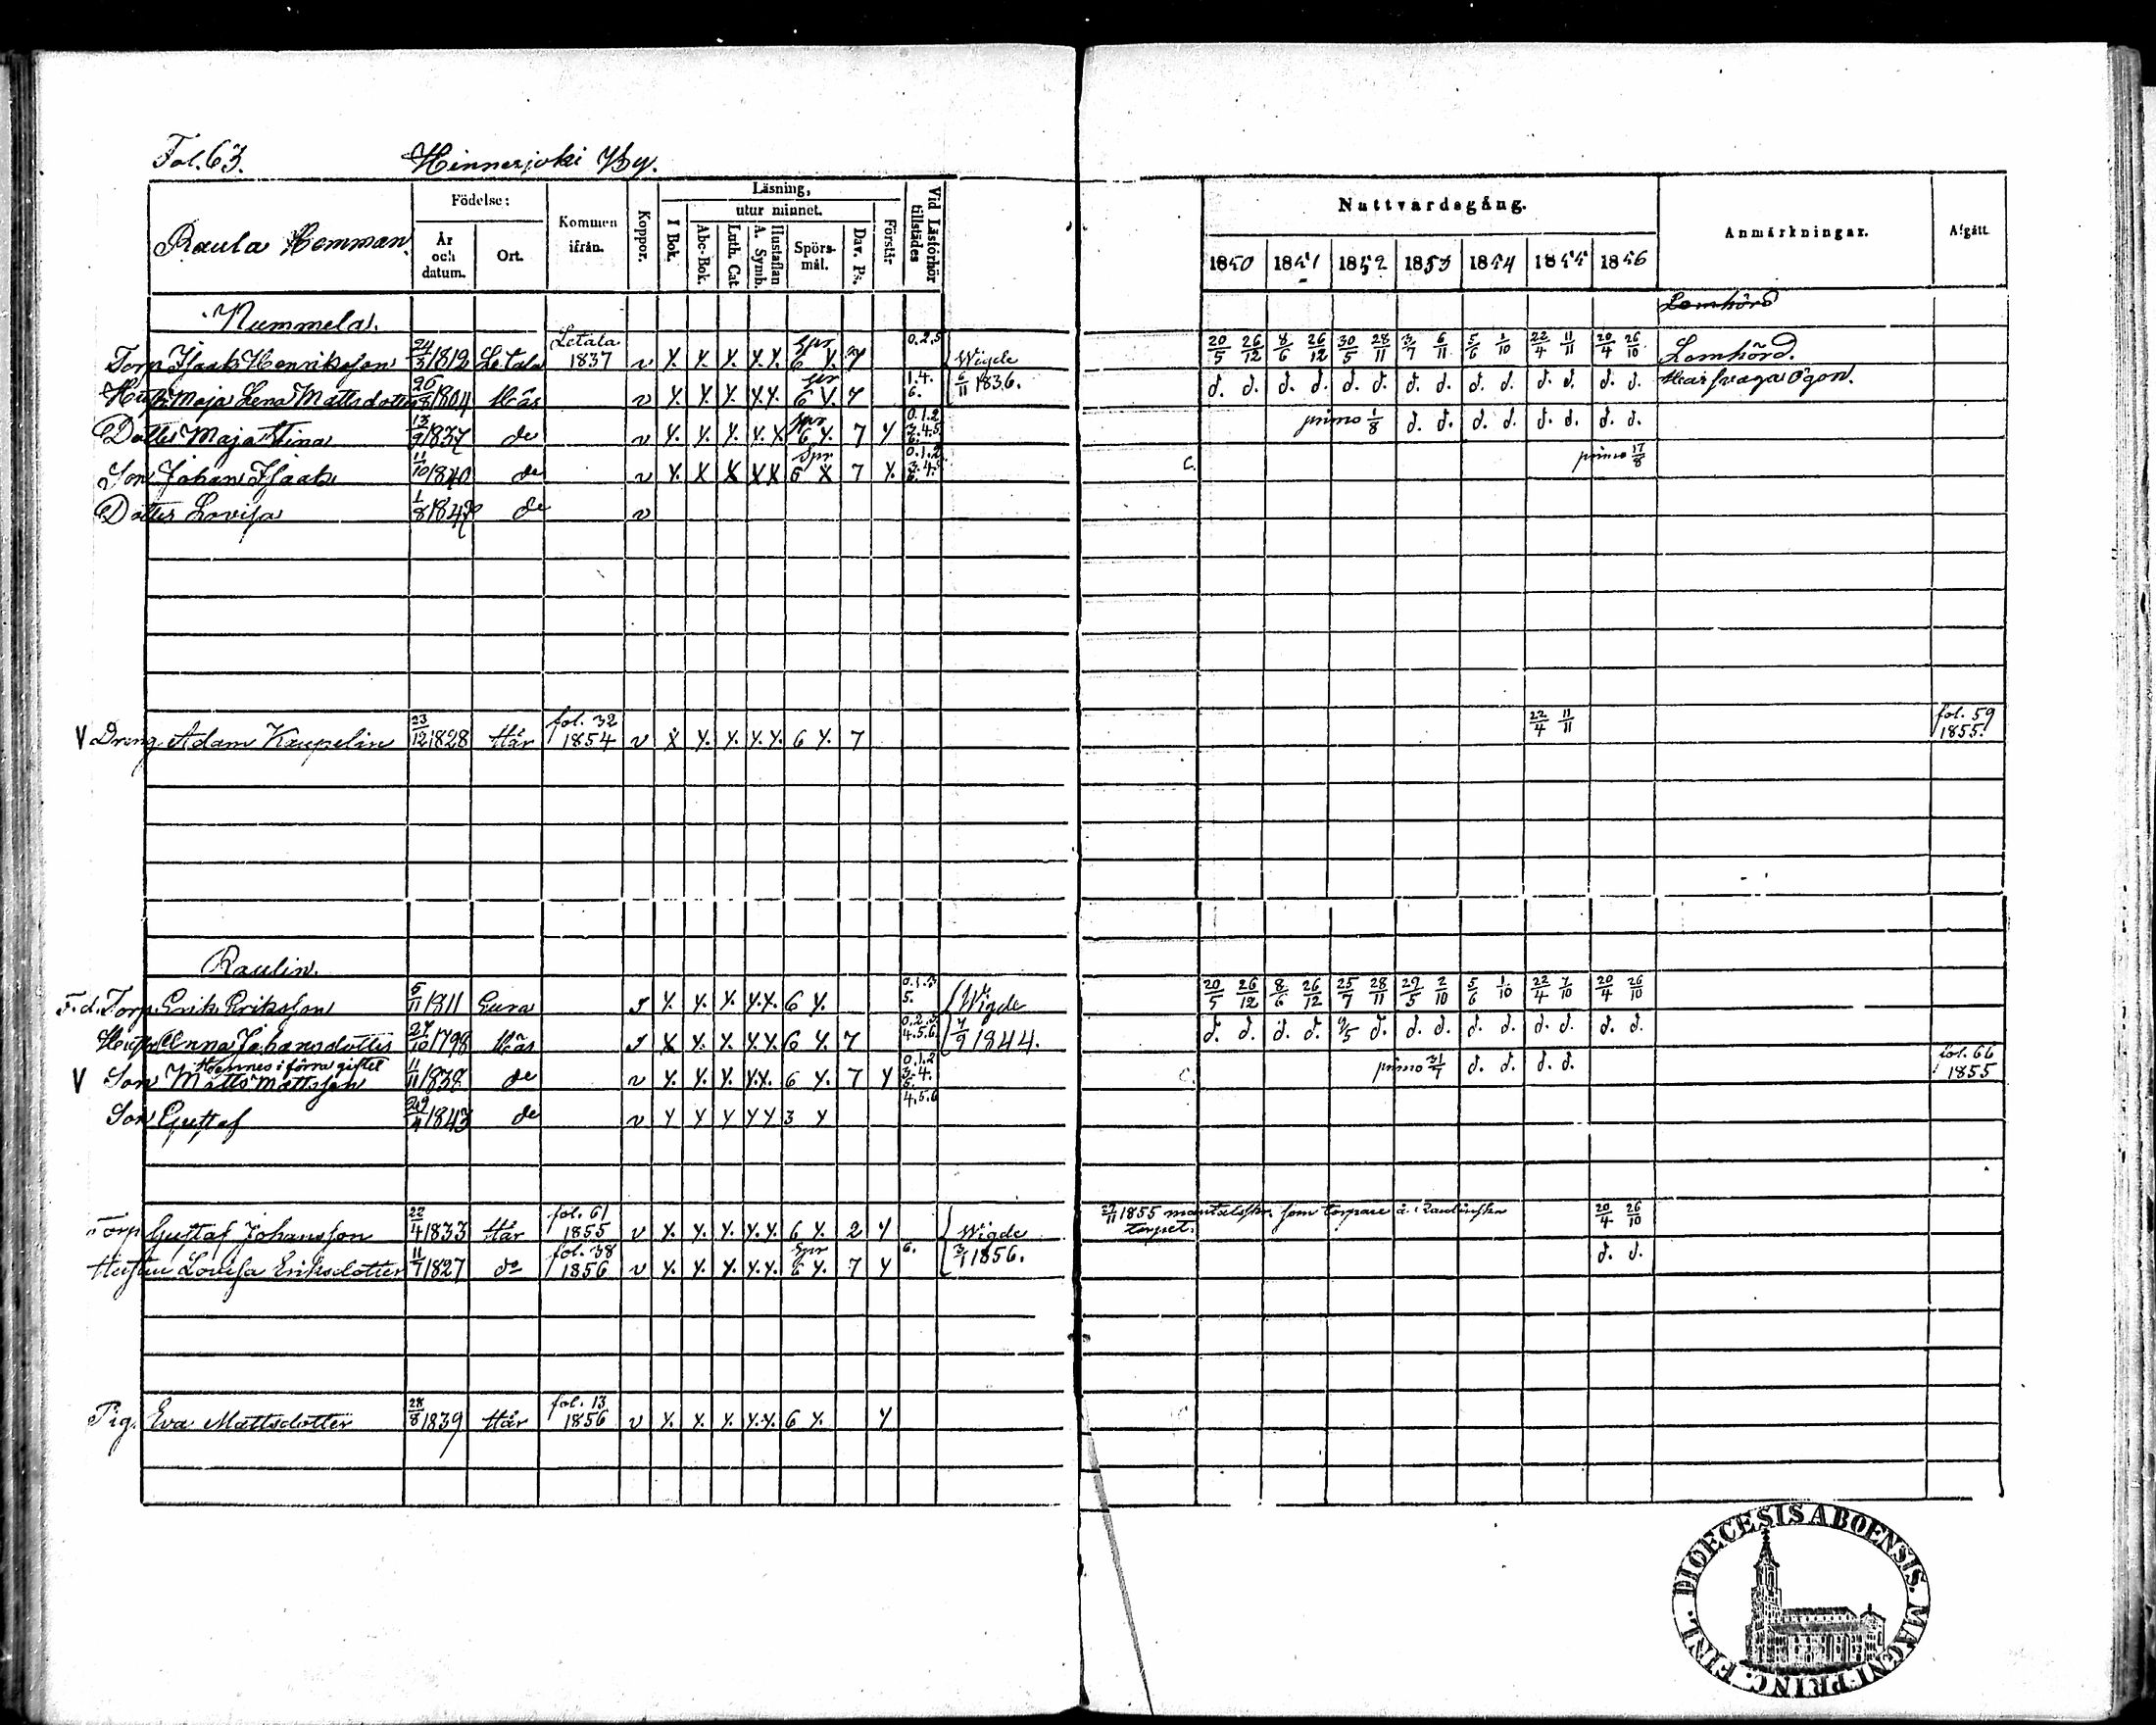 Fol. 63. Hinnerjoki By.
Raula Hemman.
Födelse: År och datum. Ort. Kommen ifrån. Koppor. Läsning, I Bok. utur minnet. Abc-Bok. Luth. Cat Hustaflan A. Symb. Spörs-mål. Dav. Ps. Förstår Vid Läsförhör tillstädes
Nattvardsgång. 1850 1851 1852 1853 1854 1855 1856 Anmärkningar. Afgått.
Nummela. Lomhörd
Torp. Isaak Henriksson 24/3 1812 Letala Letala 1837 v Y. Y. Y. Y.Y. Spr 6 Y. 7 0.2.5 Wigde 20/5 26/12 8/6 26/12 30/5 28/11 3/7 6/11 5/6 1/10 22/4 11/11 20/4 26/10 Lomhörd.
Hustr. Maja Lena Mattsdotter 1804 Här v Y. Y. Y. Y.Y. Spr 6 Y. 7 1.4. 6. 6/11 1836. d. d. d. d. d. d. d. d. d. d. d. d. d. d. Har svaga ögon.
Dotter Maja Stina 13/9 1837 do v Y. Y. Y. Y.X Spr 6 Y. 7 Y 0.1.2 3.4.5 6. primo 1/8 d. d. d. d. d. d. d. d.
Son Johan Isaak 11/10 1840 do v Y. X X XX Spr 6 X 7 Y. 0.1.2. 3.4. 6. C. primo 17/8
Dotter Lovisa 1/8 do v
V Dreng Adam Kaupelin 23/12 1828 Här fol. 32 1854 v X Y. Y. Y.Y. 6 Y. 7 22/4 11/11 fol. 59 1855.
Raulin.
F.d. Torp. Erik Eriksson 5/11 1811 Eura Y. Y. Y. Y.Y. 6 Y. 5. Wigde 20/5 26/12 8/6 26/12 25/7 28/11 29/5 2/10 5/6 1/10 22/4 7/10 20/4 26/10
Hustr. Anna Johansdotter 27/10 1798 Här X Y. Y. Y.Y. 6 Y. 7 0.2.3 4.5.6. 1844. d. d. d. d. 9/5 d. d. d. d. d. d. d. d. d.
Hennes i förra giftet
V Son Matts Mattsson 11/11 1838 do v Y. Y. Y. Y.Y. 6 Y. 7 Y 0.1.2 3.4. 6. C. primo 31/7 d. d. d. d. fol. 66 1855
Son Gustaf 1843 do v Y Y Y Y Y 3 Y 4.5.6
Torp. Gustaf Johansson 22/4 1833 Här fol. 61 1855 v Y. Y. Y. Y.Y. 6 Y. 2 Y Wigde 1855 mantalsskr. som torpare å Raulinska torpet. 20/4 26/10
Hustru Lovisa Eriksdotter 11/7 1827 do fol. 38 1856 v Y. Y. Y. Y.Y. Spr 6 Y. 7 Y 6. 3/1 1856. d. d.
Pig. Eva Mattsdotter 28/8 1839 Här fol. 13 1856 v Y. Y. Y. Y.Y. 6 Y. Y
DIOECESIS ABOENSIS. MAGNI. PRINC. FINL.